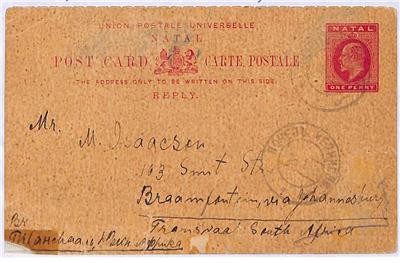 UNION POSTALE UNIVERSELLE
NATAL
POST CARD CARTE POSTALE
THE ADDRESS ONLY TO BE WRITTEN ON THIS SIDE.
REPLY.
NATAL
ONE PENNY
Mr.
M. Isaacson
163 Smit Str.
Braamfontein via Johannesburg
Transvaal South Africa
Африка